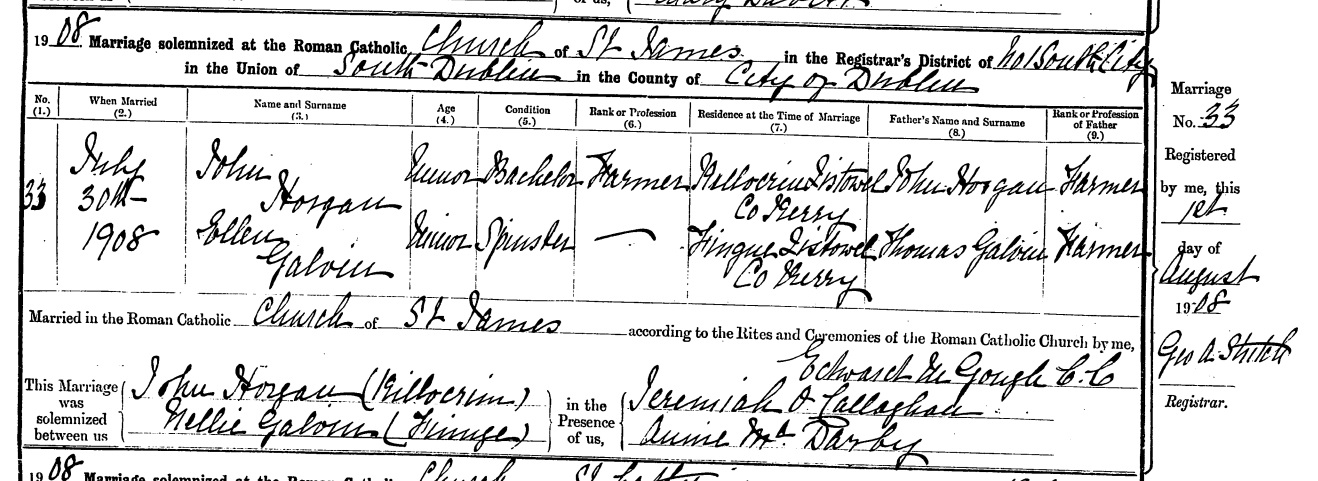 1908 Marriage solemnized at the Roman Catholic Church of St James in the Registrar's District of No 1 South City
in the Union of South Dublin in the County of City of Dublin
No. (1.) When Married (2.) Name and Surname (3.) Age (4.) Condition (5.) Rank or Profession (6.) Residence at the Time of Marriage (7.) Father's Name and Surname (8.) Rank or Profession of Father (9.)
33 July 30th 1908
John Horgan Minor Bachelor Farmer Killocrim Listowel Co Kerry John Horgan Farmer
Ellen Galvin Minor Spinster — Finuge Listowel Co Kerry Thomas Galvin Farmer
Married in the Roman Catholic Church of St James according to the Rites and Ceremonies of the Roman Catholic Church by me,
Edward Gough C.C
This Marriage was solemnized between us
John Horgan (Killocrim)
Nellie Galvin (Finuge)
in the Presence of us,
Jeremiah O Callaghan
Annie Darby
Marriage
No. 33
Registered
by me, this
1st
day of
August
1908
Geo A
Registrar.
1908 Marriage solemnized at the Roman Catholic Church